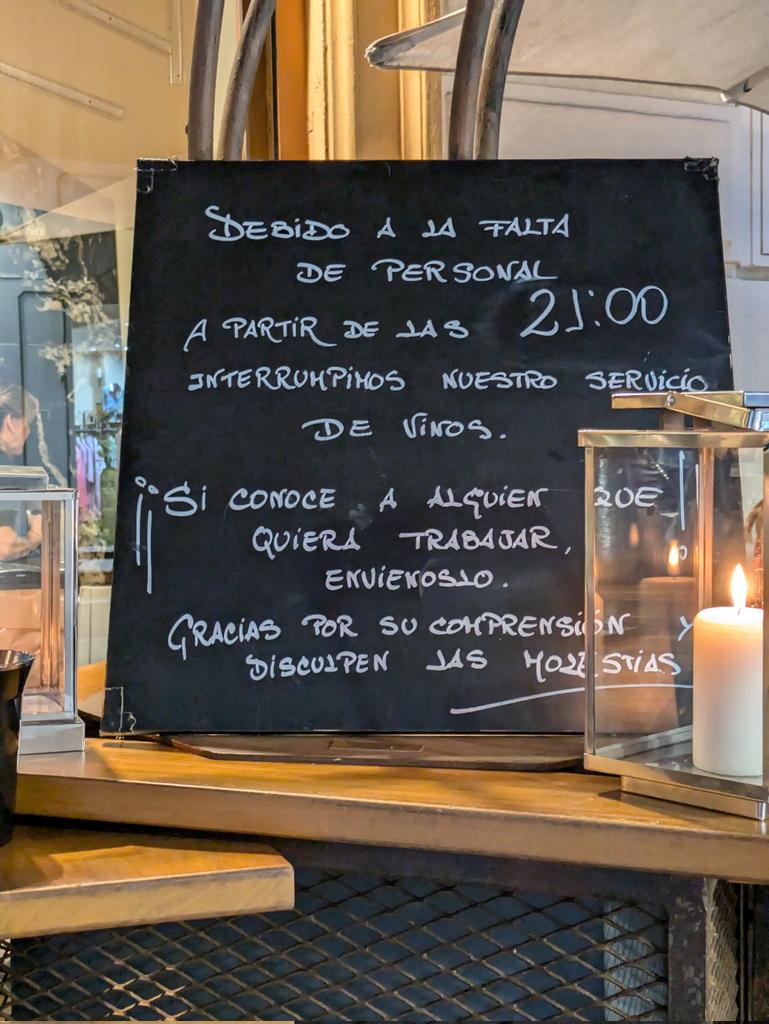 DEBIDO A LA FALTA
DE PERSONAL
A PARTIR DE LAS 21:00
INTERRUMPIMOS NUESTRO SERVICIO
DE VINOS.
¡¡SI CONOCE A ALGUIEN QUE
QUIERA TRABAJAR,
ENVIENOSLO.
GRACIAS POR SU COMPRENSIÓN Y
DISCULPEN LAS MOLESTIAS